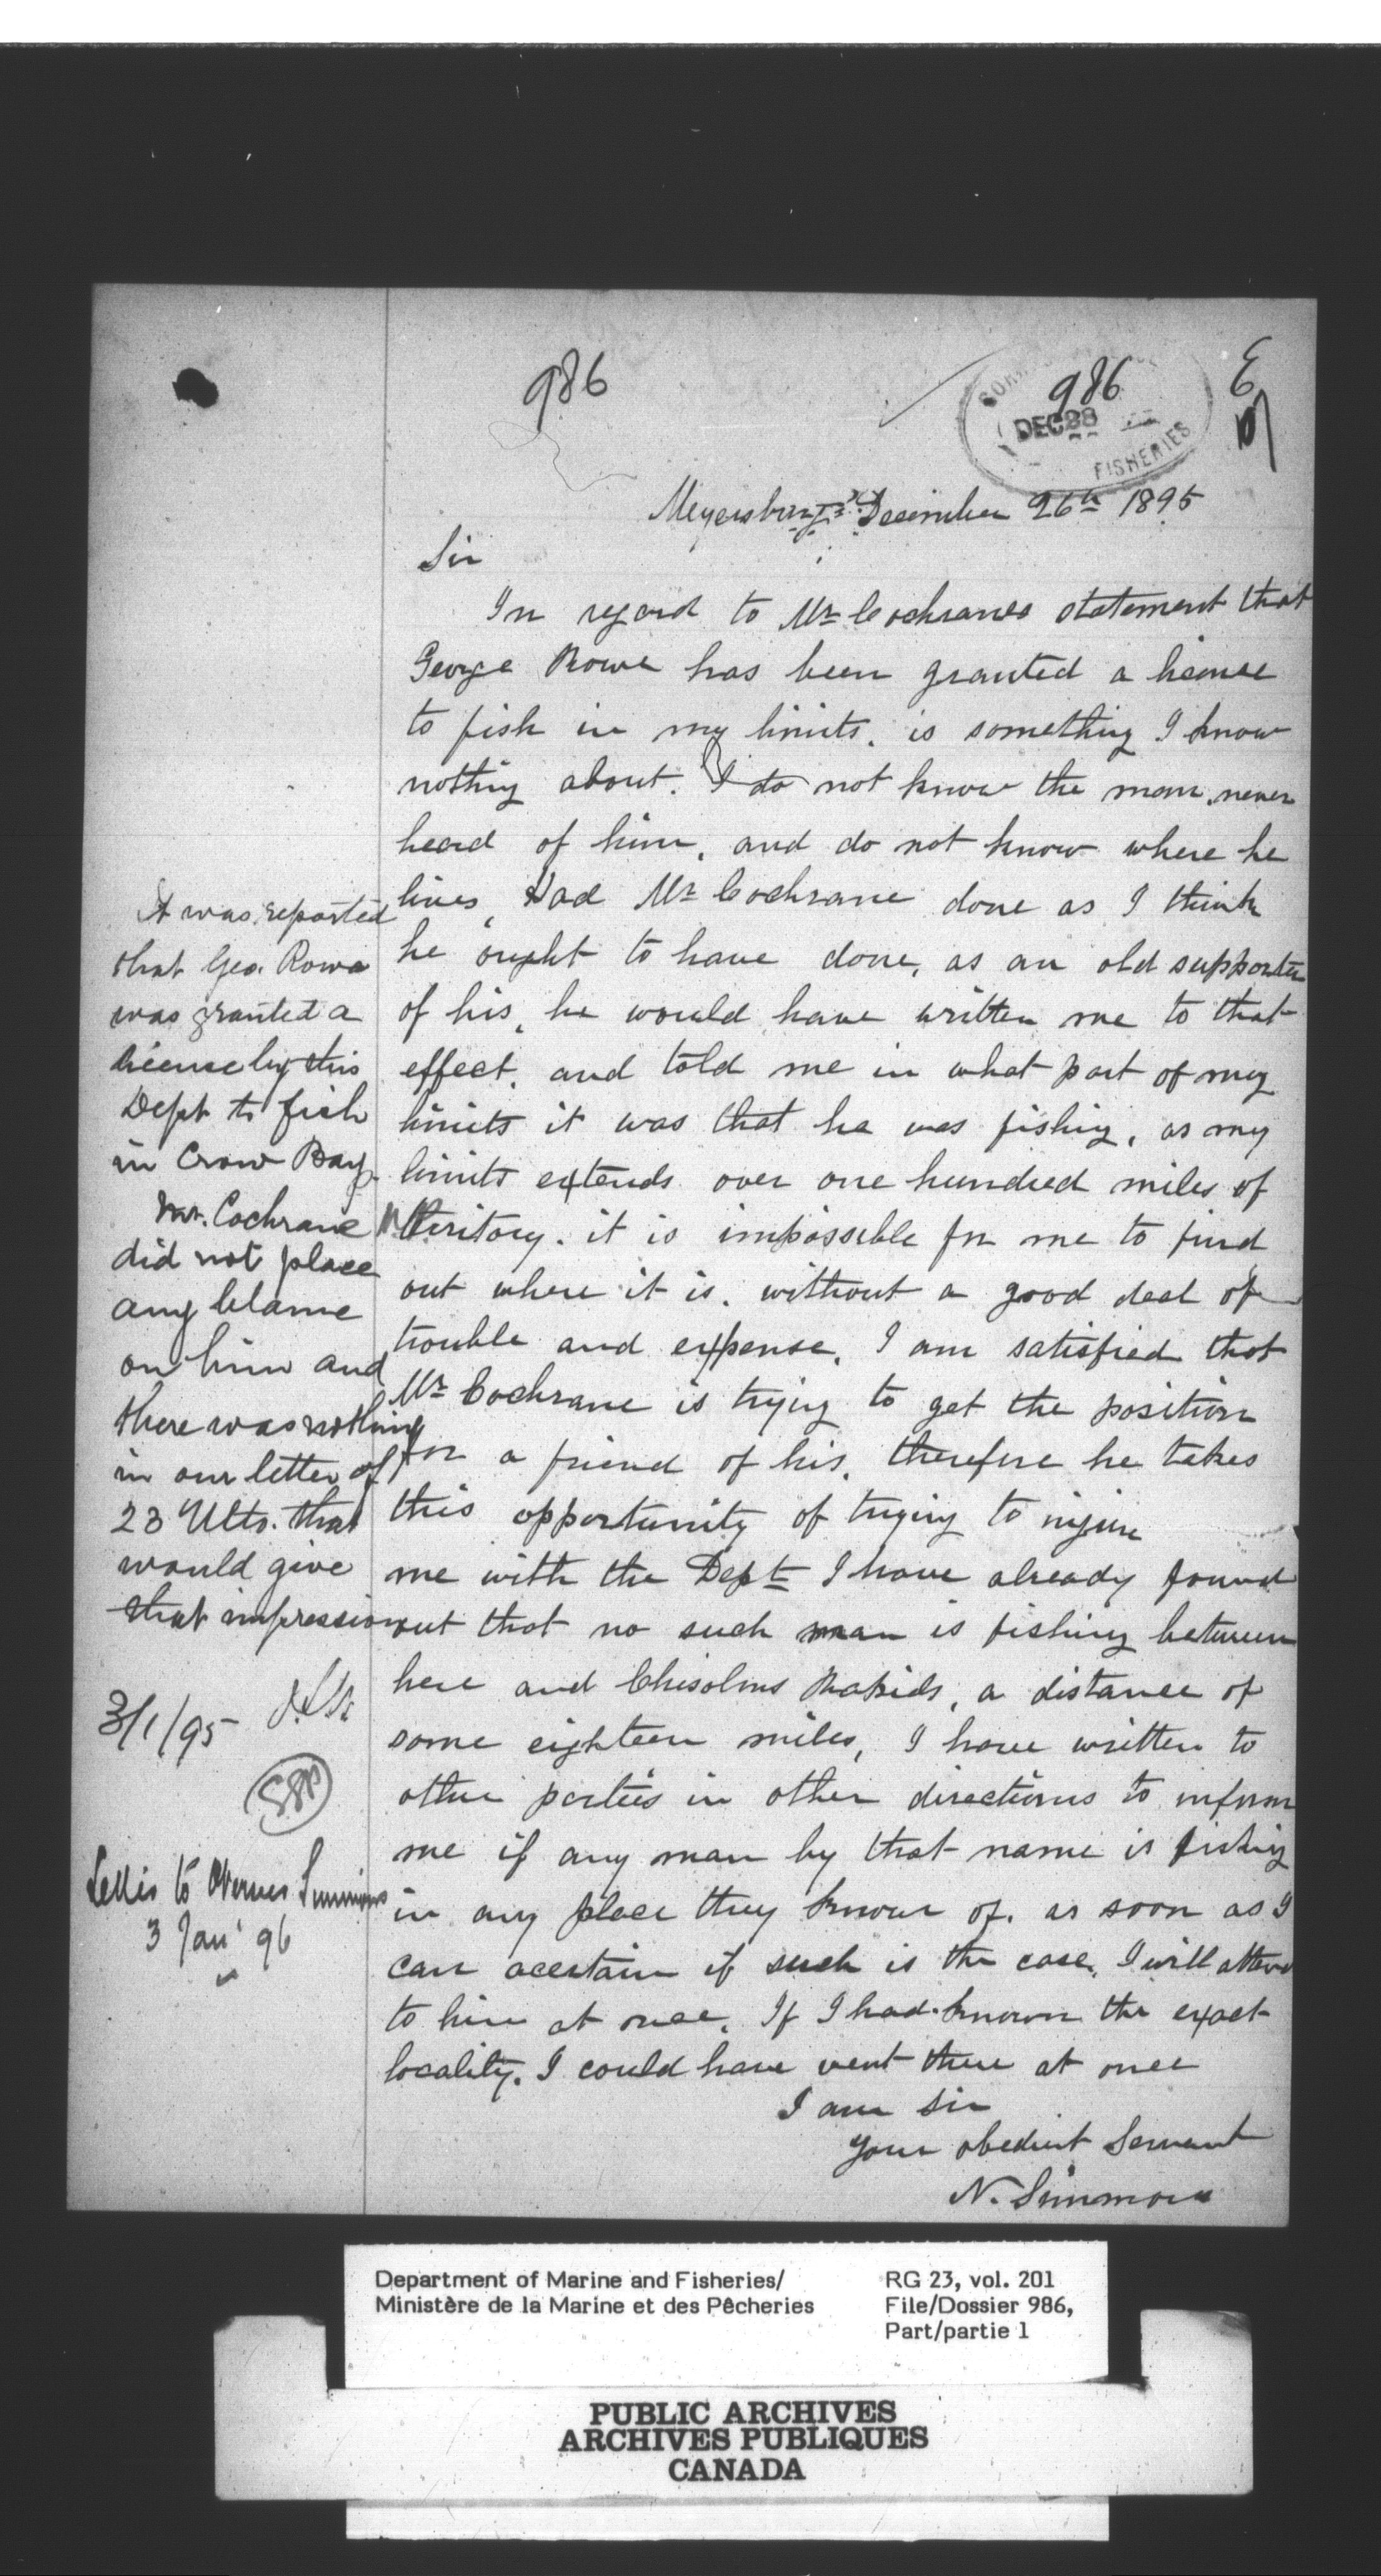 986
986
DEC 28
FISHERIES
Meyersburg December 26th 1895
Sir
In regard to Mr Cochranes statement that
George Rowe has been granted a license
to fish in my limits. is something I know
nothing about. I do not know the man, never
heard of him, and do not know where he
lives, Had Mr Cochrane done as I think
he ought to have done, as an old supporter
of his, he would have written me to that
effect, and told me in what part of my
limits it was that he was fishing, as my
limits extends over one hundred miles of
teritory. it is impossible for me to find
out where it is. without a good deal of
trouble and expense. I am satisfied that
Mr Cochrane is trying to get the position
for a friend of his. therefore he takes
this opportunity of trying to injure
me with the Dept I have already found
out that no such man is fishing between
here and Chisolms Rapids, a distance of
some eighteen miles, I have written to
other parties in other directions to inform
me if any man by that name is fishing
in any place they know of. as soon as I
can acertain if such is the case, I will attend
to him at once. If I had known the exact
locality. I could have went there at once
I am Sir
Your obedient Servant
N. Simmons
It was reported
that Geo. Rowe
was granted a
license by this
Dept to fish
in Crow Bay.
Mr. Cochrane
did not place
any blame
on him and
there was nothing
in our letter of
23 Ulto. that
would give
that impression
3/1/95
SSB
to Simmons
3 Jan' 96
Department of Marine and Fisheries/
Ministère de la Marine et des Pêcheries
RG 23, vol. 201
File/Dossier 986,
Part/partie 1
PUBLIC ARCHIVES
ARCHIVES PUBLIQUES
CANADA